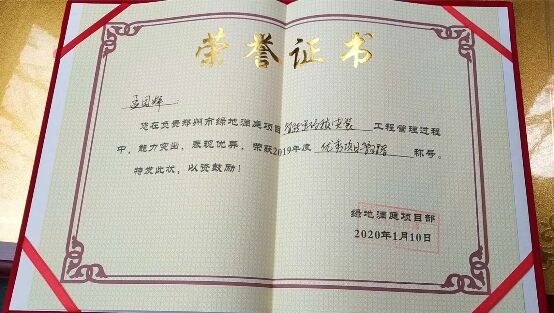 荣誉证书
孟国辉
您在负责郑州市绿地澜庭项目 工程管理过程
中，能力突出，表现优异，荣获2019年度优秀项目经理称号。
特发此状，以资鼓励！
绿地澜庭项目部
2020年1月10日